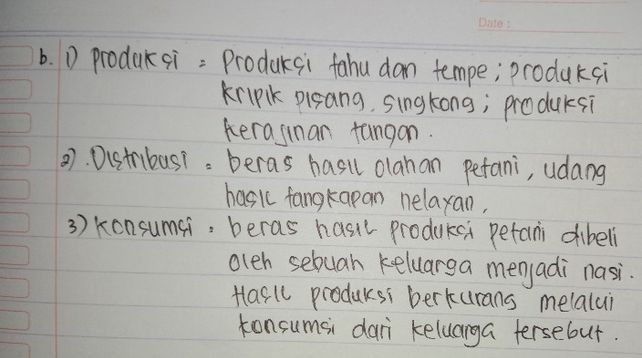 Date :
b. 1) produksi = Produksi tahu dan tempe ; produksi
kripik pisang, singkong ; produksi
kerajinan tangan.
2). Distribusi = beras hasil olahan petani, udang
hasil tangkapan nelayan,
3) Konsumsi = beras hasil produksi petani dibeli
oleh sebuah keluarga menjadi nasi.
Hasil produksi berkurang melalui
konsumsi dari keluarga tersebut.